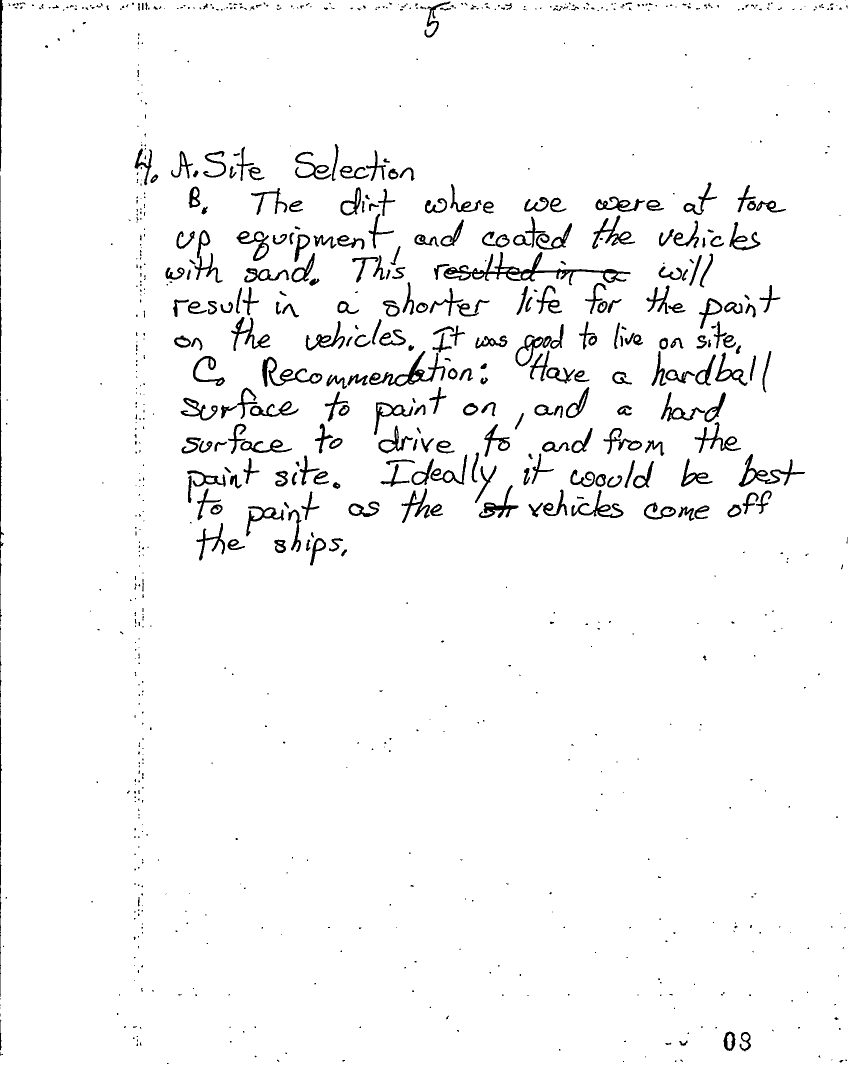 5
4. A. Site Selection
B. The dirt where we were at tore
up equipment, and coated the vehicles
with sand. This resulted in a will
result in a shorter life for the paint
on the vehicles. It was good to live on site.
C. Recommendation: Have a hardball
surface to paint on, and a hard
surface to drive to, and from the
paint site. Ideally it would be best
to paint as the st vehicles come off
the ships.
08